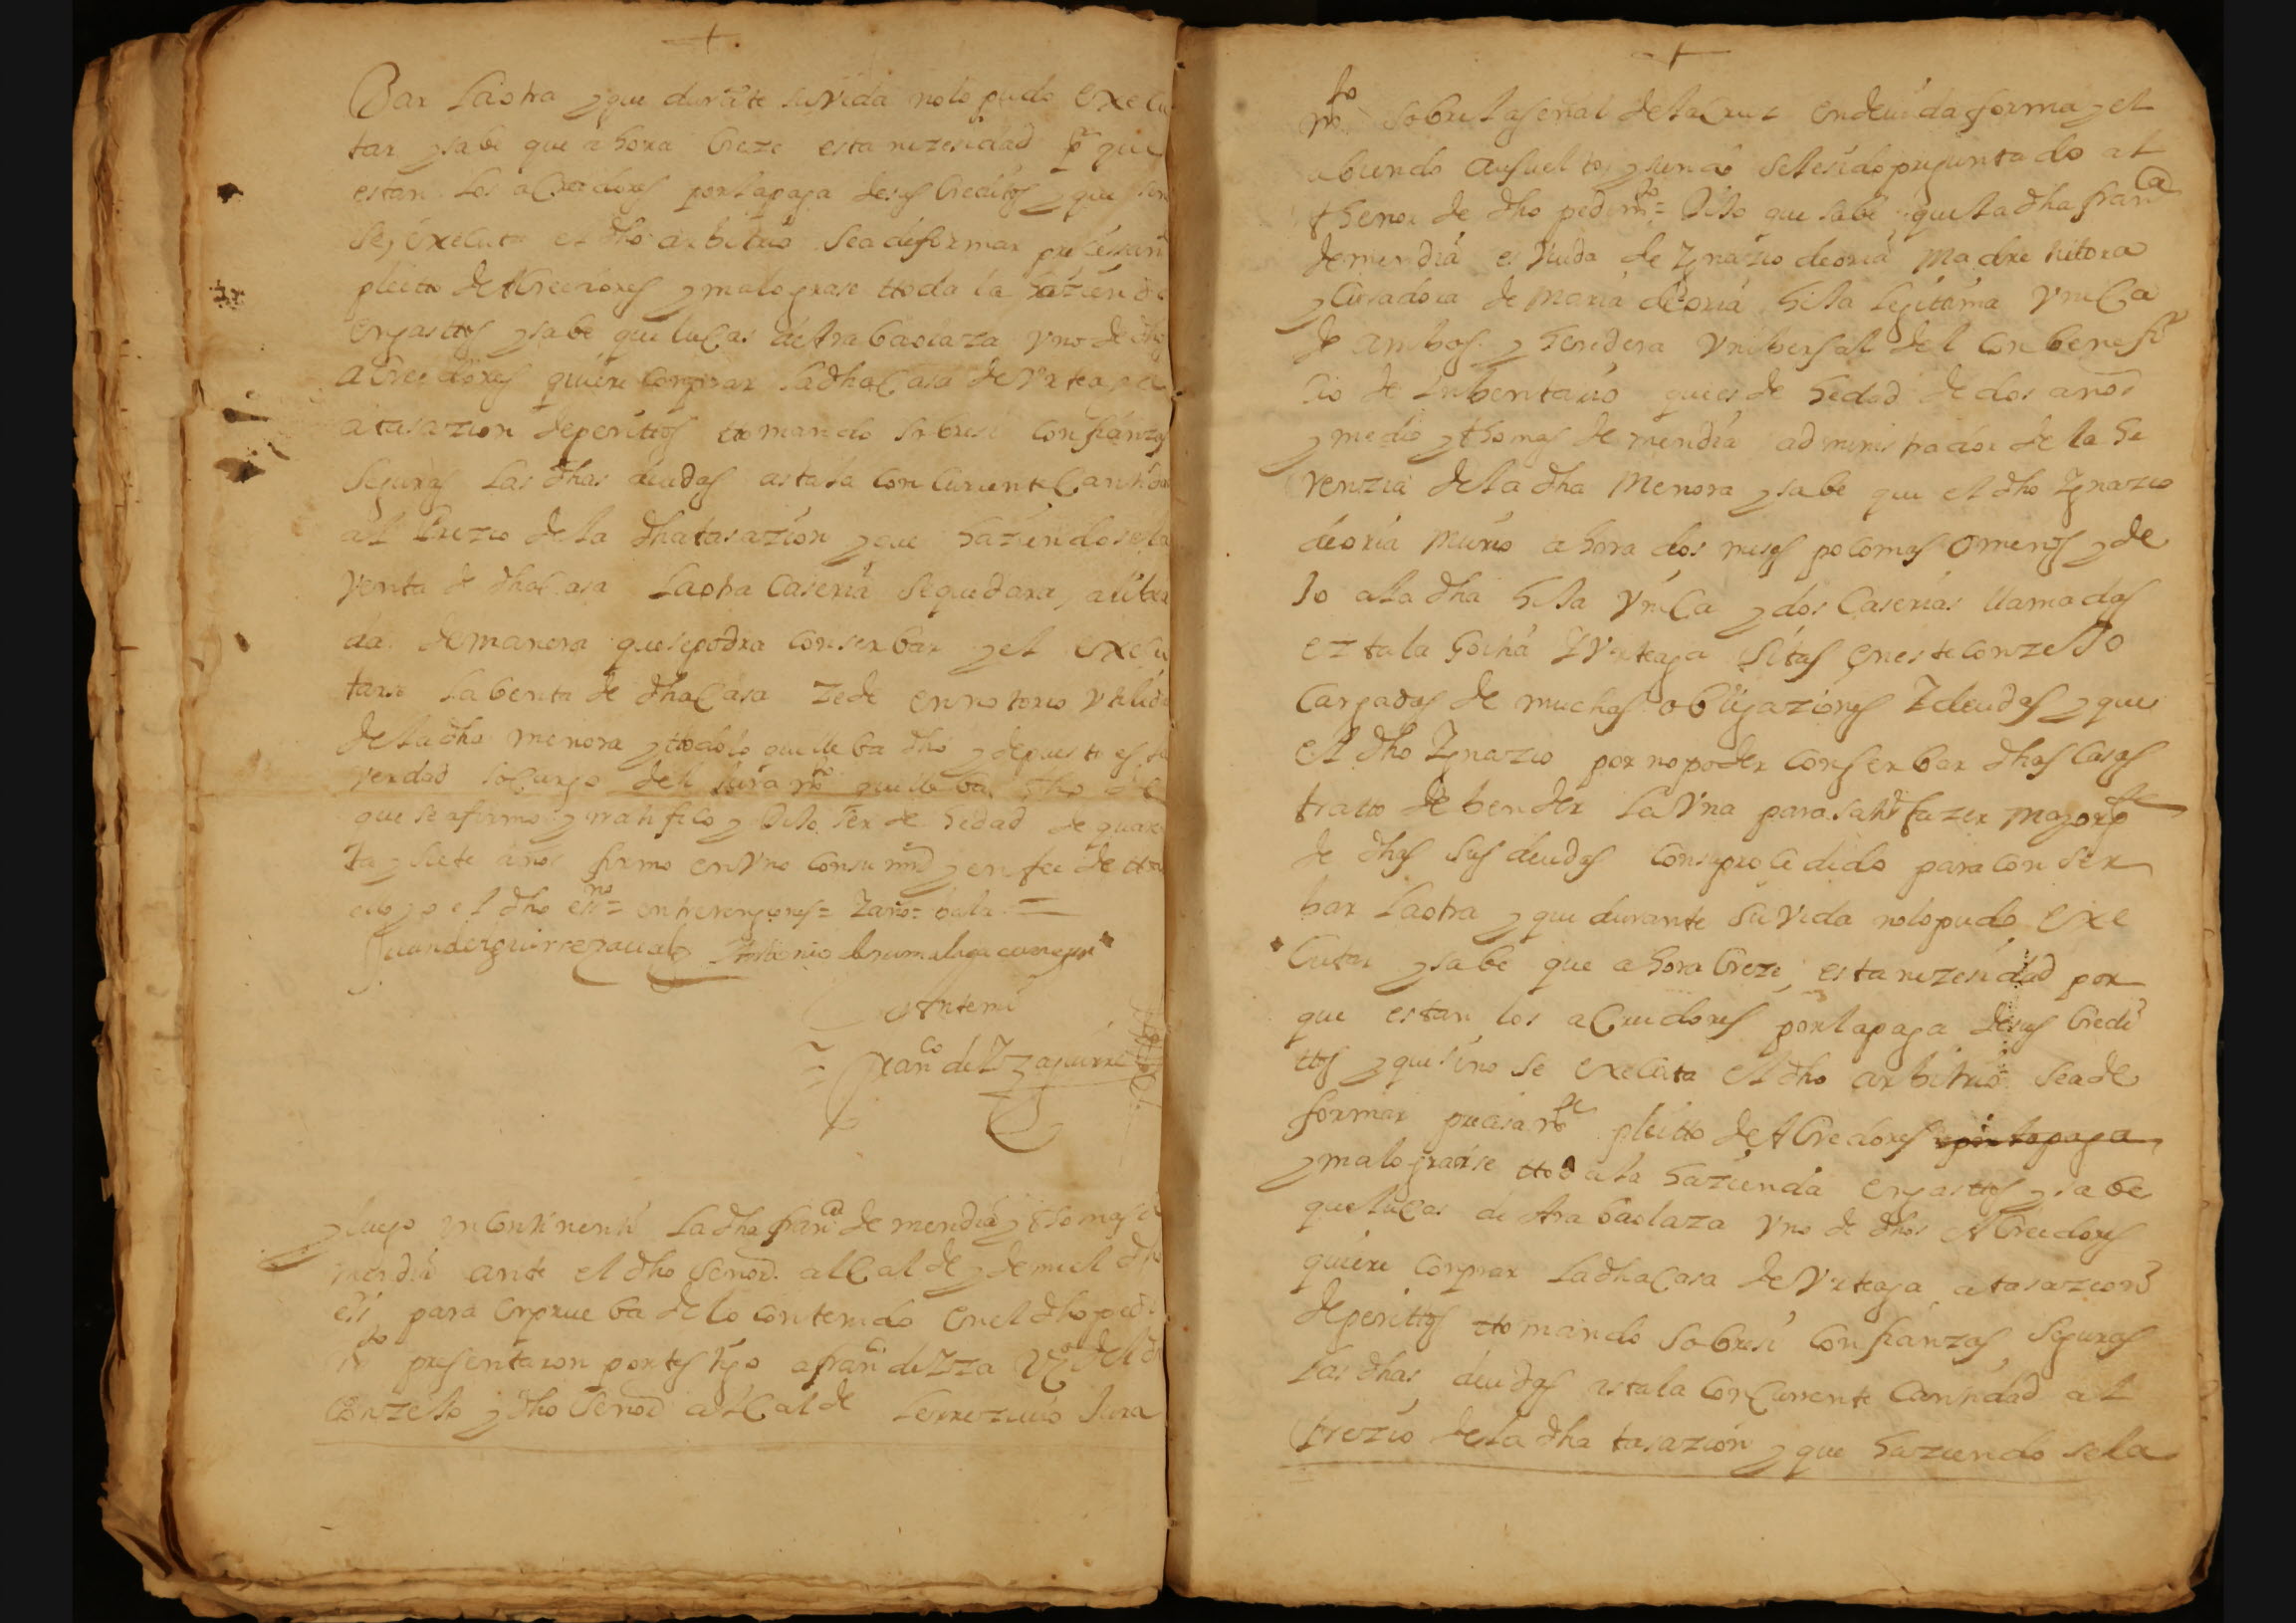 +
Bar Laotra y que durāte su vida nolo pudo execu
tar y sabe que ahora Creze esta nezesidad pr que
estan los aCreedores por la paga de sus Creditos y que sino
se executa el dho arbitrio sea de formar
pleito de ACreedores y malograse ttoda la hazienda
en gasttos y sabe que luCas de Arabaolaza Vno de dhos
aCreedores quiere comprar la dha Casa de Vrteaga
a tasazion de perittos ttomando sobre si con fianzas
seguras las dhas deudas asta la con Currente Cantidad
al Prezio de la dha tasazion y que haziendosela
Venta de dha Casa Laotra Caseria se quedara
da de manera que se podra conserbar y el execu
tarse la benta de dha Casa zede en notorio Vtilida
de la dha menora y ttodo lo que lleba dho y depuesto es la
verdad so Cargo del juramto que lleba dho
que se afirmo y ratifico y Dijo ser de hedad de quaren
ta y siete años firmo en Vno con su md y en fee de tto
ello yo el dho essno =
Juan de Izuirre Antonio
Antemi
Franco de Yzaguirre
y luego yn Continenti La dha franca de mendia y thomas de
mendia ante el dho Senor alCalde y de mi el dho
ess para en prueba de lo contenido en el dho pedi
mto presentaron por testigo a franco de Vzo de el dho
Conzejo y dho Senor alCalde Le rrezivio Jura
+
mto sobre la señal de la Cruz en deuida forma y el
abiendo ausuelto y siendo sele sido preguntado al
thenor de dho pedimto = Dijo que sabe que la dha franca
de mendia es Viuda de Ygnazio de oria Madre tutora
y Curadora de Maria de oria hija legitima VniCa
de ambos y heredera Vnibersal del con benefi
cio de Inbentario que es de hedad de dos años
y medio y thomas de mendia administrador de la he
renzia de la dha Menora y sabe que el dho Ygnazio
de oria Murio ahora dos meses poco mas o menos y de
Jo a la dha hija VniCa y dos Caserias llamadas
eztala Goiha Y Vrteaga sitas en este conzejo
Cargadas de muchas obligaziones Y deudas y que
el dho Ygnazio por no poder conserbar dhas Casas
tratto de bender la Vna para satisfazer Mayor pte
de dhas sus deudas con su procedido para conser
bar Laotra y que durante su vida nolo pudo exe
Cutar y sabe que ahora Creze esta nezesidad por
que estan los aCreedores por la paga de sus Credi
ttos y que sino se executa el dho arbitrio sea de
formar precisamte pleitto de ACredores por la paga
y malograrse ttoda la hazienda en gasttos y sabe
que luCas de Arabaolaza Vno de dhos ACreedores
quiere comprar la dha Casa de Vrteaga a tasazion
de perittos ttomando sobre si con fianzas seguras
las dhas deudas asta la con Currente Cantidad al
Prezio de la dha tasazion y que haziendosela